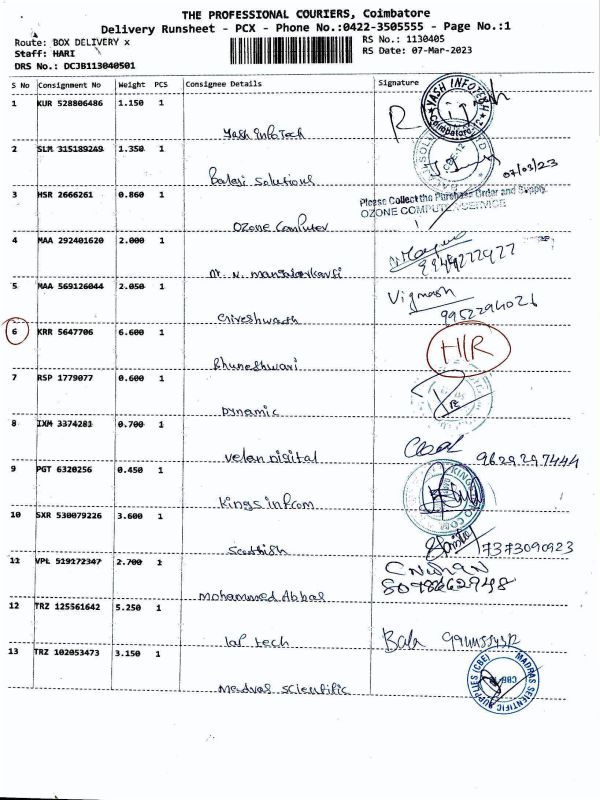 THE PROFESSIONAL COURIERS, Coimbatore
Delivery Runsheet - PCX - Phone No.:0422-3505555 - Page No.:1
Route: BOX DELIVERY x
RS No.: 1130405
Staff: HARI
RS Date: 07-Mar-2023
DRS No.: DCJB113040501
S No Consignment No Weight PCS Consignee Details Signature
1 KUR 528806486 1.150 1
Yash InfoTech
YASH INFOTECH
Coimbatore-12
2 SLM 315189249 1.350 1
Balaji Solutions
07/03/23
3 HSR 2666261 0.860 1
Please Collect the Purchase Order and Supply.
OZONE COMPUTER SERVICE
Ozone Computer
4 MAA 292401620 2.000 1
5 MAA 569126044 2.050 1
Vignesh
9952294026
6 KRR 5647706 6.600 1
H/R
Bhuneshwari
7 RSP 1779077 0.600 1
Dynamic
8 IXM 3374281 0.700 1
Velan Digital
9629297444
9 PGT 6320256 0.450 1
Kings infocom
10 SXR 530079226 3.600 1
7373090923
11 VPL 519172347 2.700 1
Mohammed Abbas
12 TRZ 125561642 5.250 1
Bala
13 TRZ 102053473 3.150 1
MADRAS SCIENTIFIC SUPPLIES (CBE)
Madras Scientific